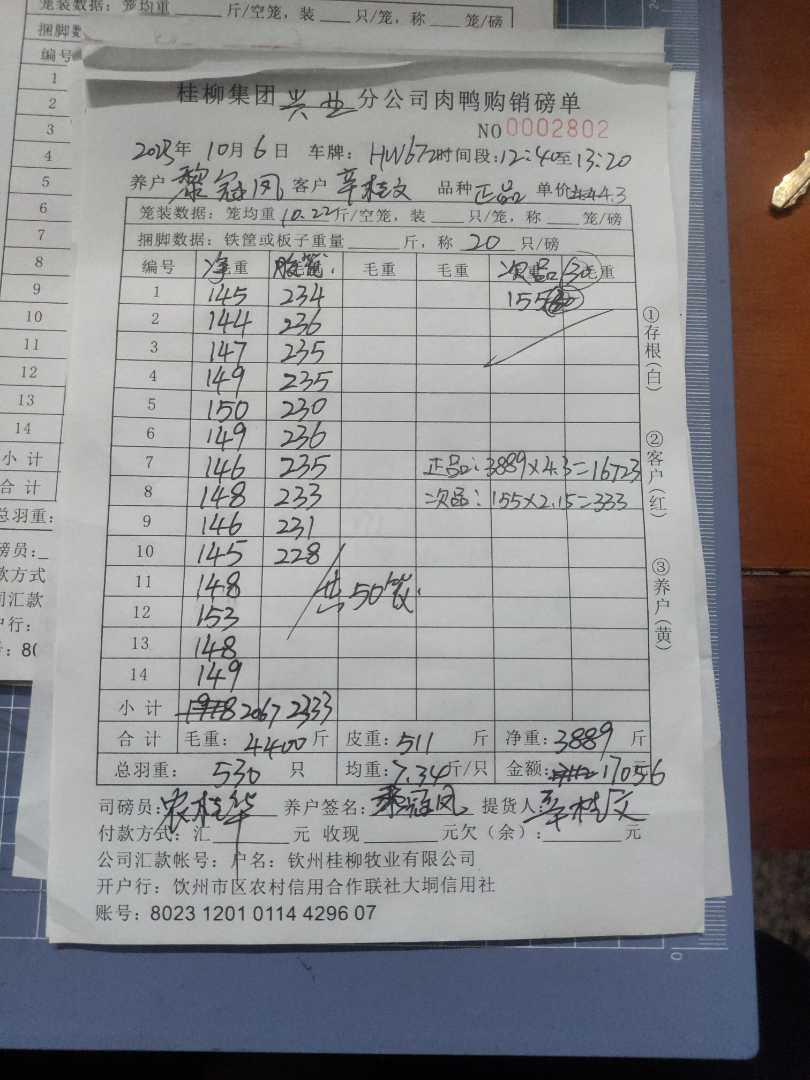 笼装数据：笼均重____斤/空笼，装____只/笼，称____笼/磅
捆脚数
编号
1
2
3
4
5
6
7
8
9
10
11
12
13
14
小 计
合 计
总羽重：
磅员：
款方式
司汇款
户行：
号：80
桂柳集团 兴业 分公司肉鸭购销磅单
NO 0002802
2023年 10月 6日 车牌：HW672 时间段：12:40至13:20
养户 黎冠凤 客户 辛桂文 品种 正品 单价 4.3
笼装数据：笼均重 10.22 斤/空笼，装____只/笼，称____笼/磅
捆脚数据：铁筐或板子重量____斤，称 20 只/磅
编号 净重 毛重 毛重 次品 毛重
1 145 234 155
2 144 236
3 147 235
4 149 235
5 150 230
6 149 236
7 146 235 正品：3889×4.3=16723
8 148 233 次品：155×2.15=333
9 146 231
10 145 228
11 148 共50笼
12 153
13 148
14 149
小 计 2067 2333
合 计 毛重：4400 斤 皮重：511 斤 净重：3889 斤
总羽重：530 只 均重：7.34 斤/只 金额：17056 元
司磅员：农桂华 养户签名：黎冠凤 提货人 辛桂文
付款方式：汇____元 收现____元欠（余）：____元
公司汇款帐号：户名：钦州桂柳牧业有限公司
开户行：饮州市区农村信用合作联社大垌信用社
账号：8023 1201 0114 4296 07
①存根（白）
②客户（红）
③养户（黄）